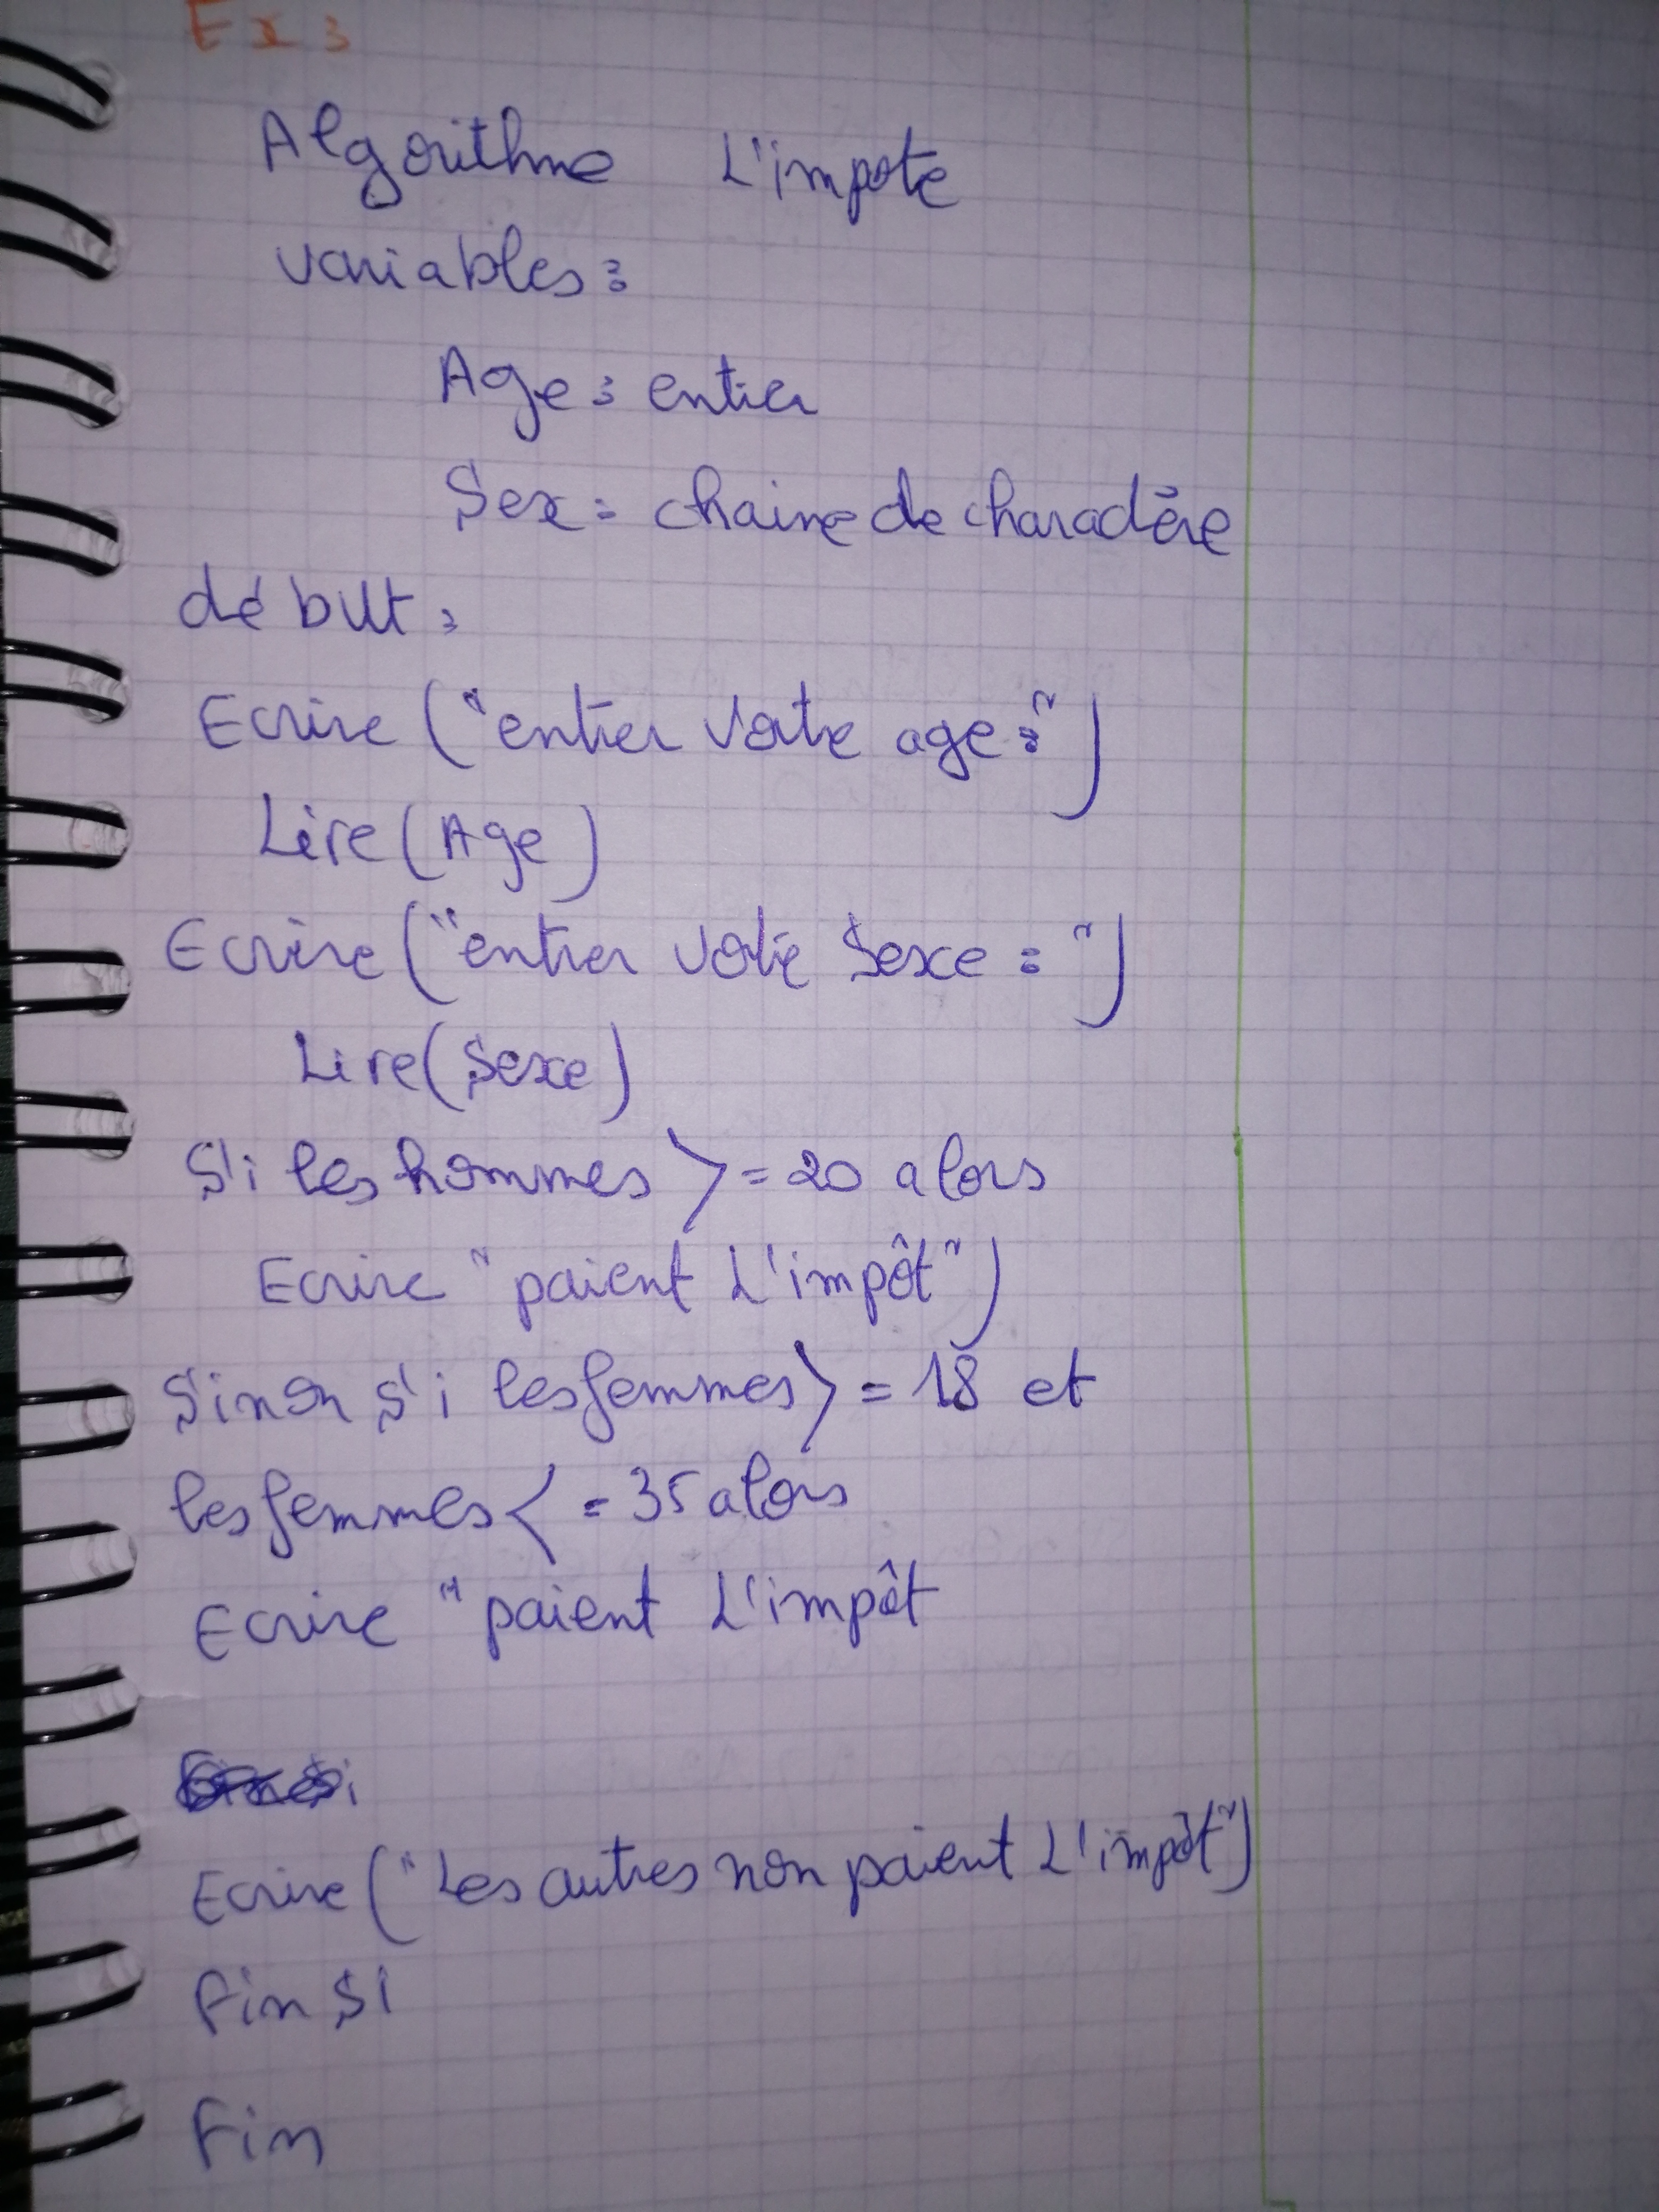 Ex :
Algorithme L'impote
variables :
Age : entier
Sex : chaine de charactère
début :
Ecrire ("entrer votre age :")
Lire (Age)
Ecrire ("entrer votre Sexe : ")
Lire (Sexe)
Si les hommes >= 20 alors
Ecrire "paient L'impôt")
Sinon Si les femmes >= 18 et
les femmes <= 35 alors
Ecrire "paient L'impôt
Ecrire ("Les autres non paient L'impôt")
Fin Si
Fin